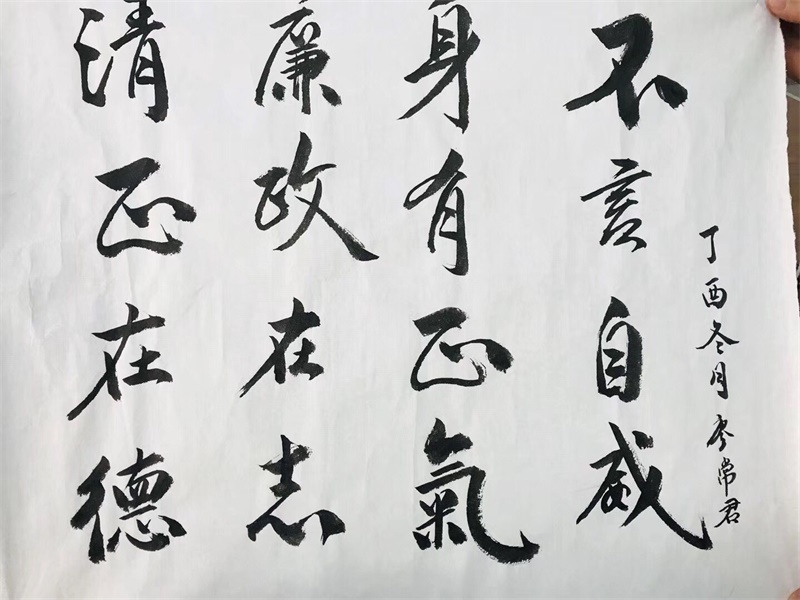 清正在德
廉政在志
身有正氣
不言自威
丁酉冬月李常君